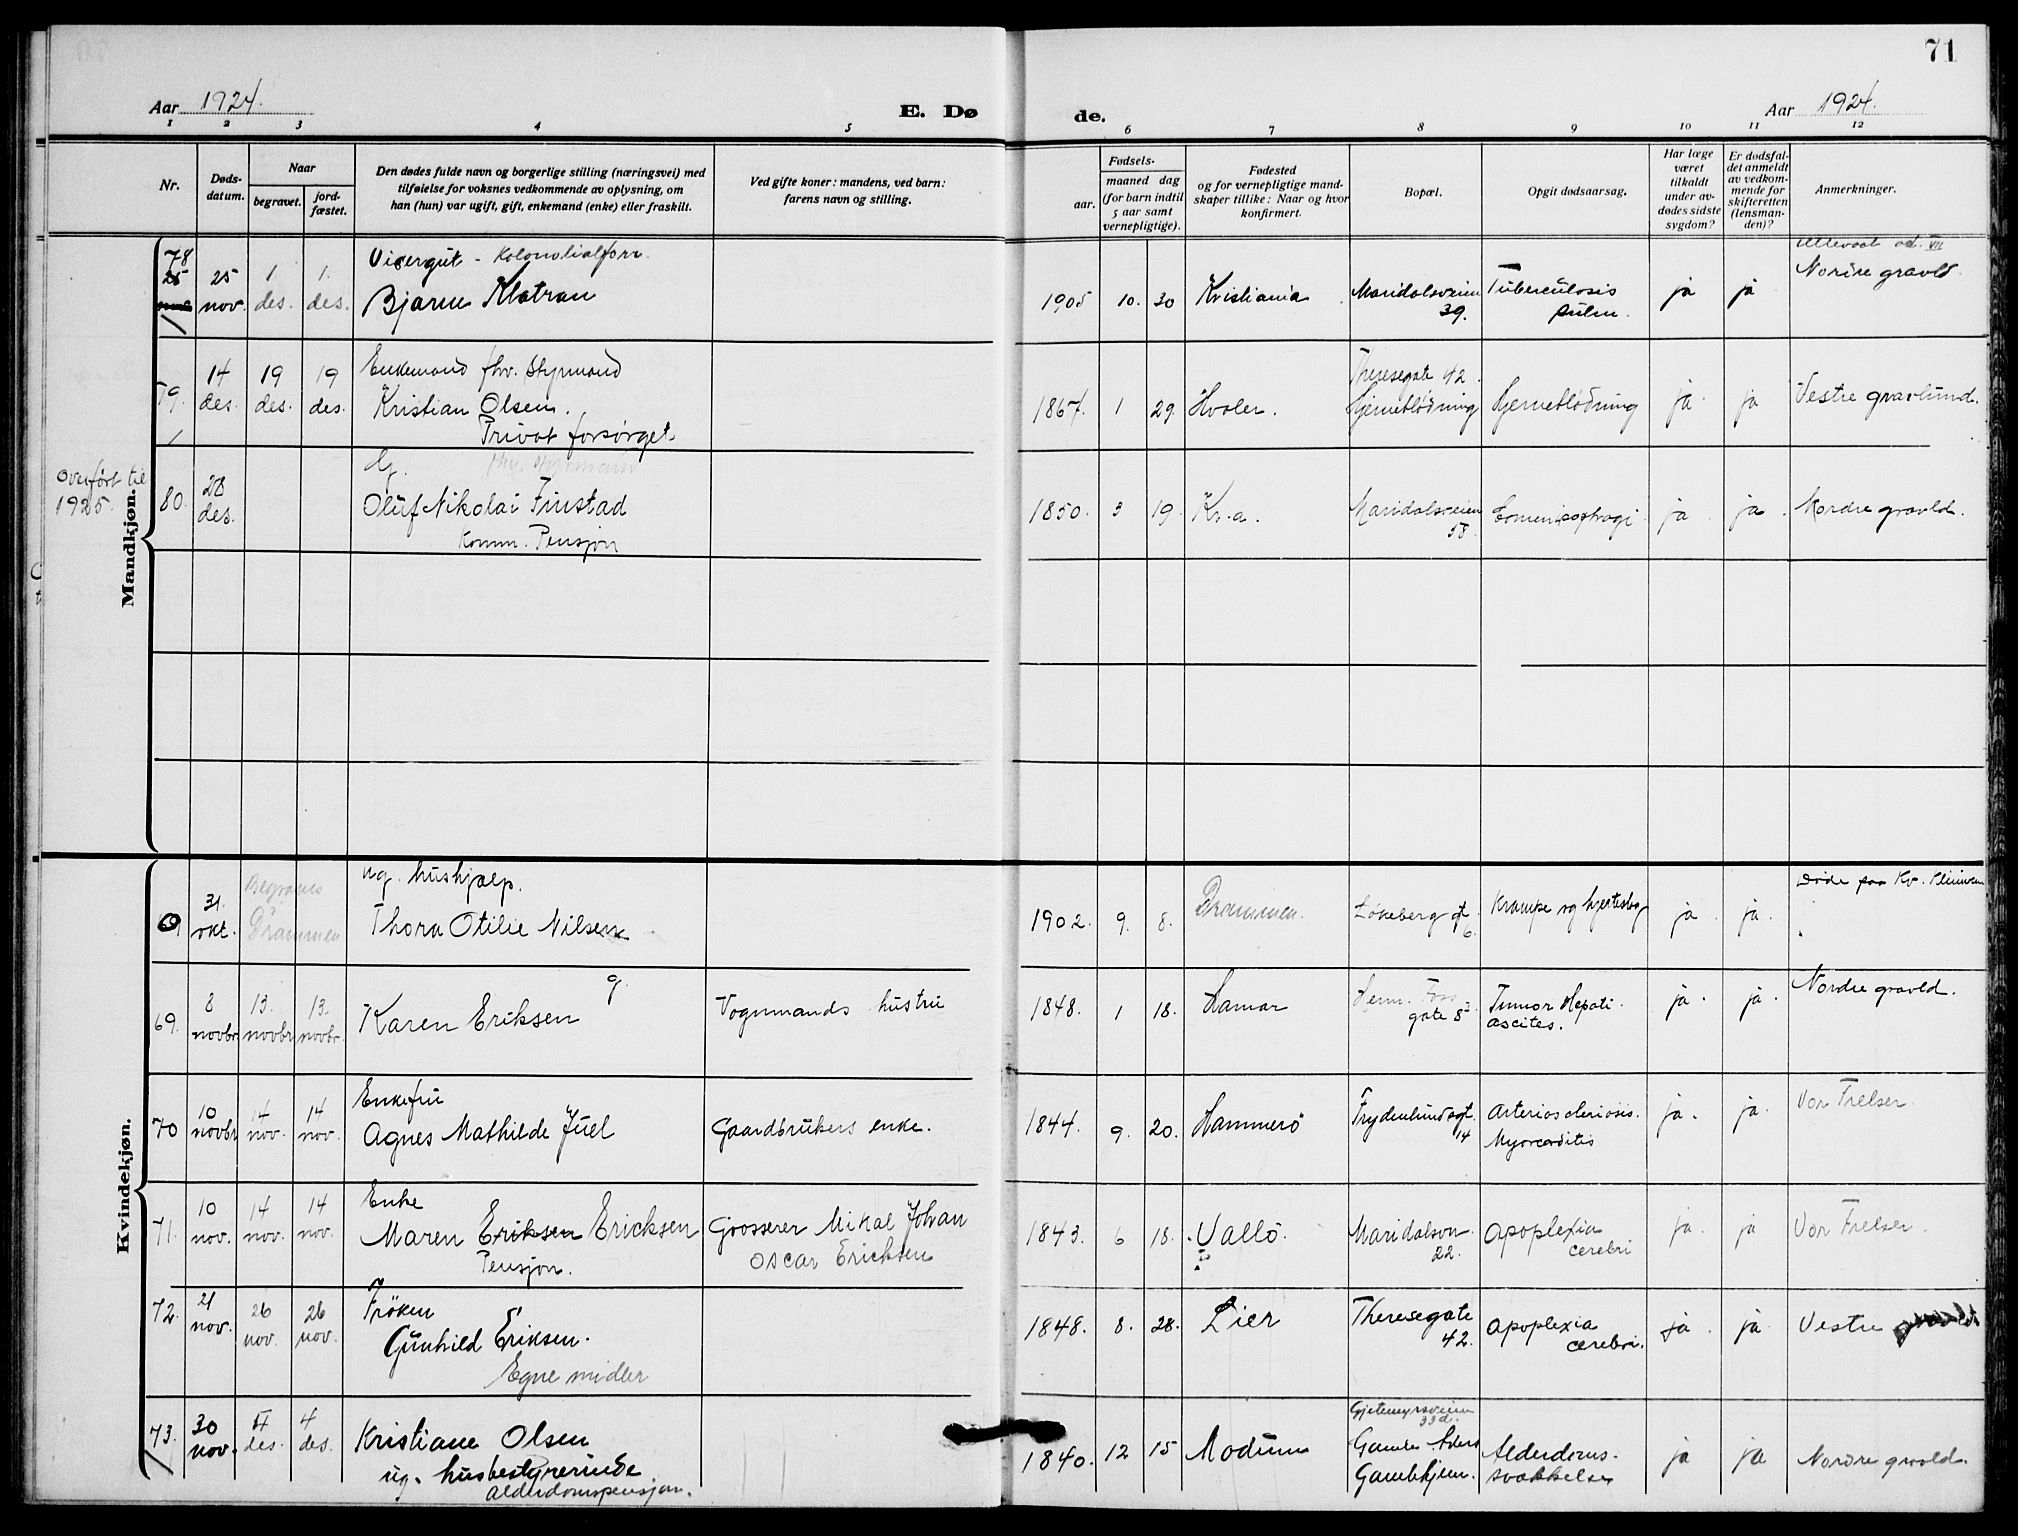 71
Aar 1924.
E. Dø
de.
Aar 1924.
1 2 3 4 5 6 7 8 9 10 11 12
Nr.
Døds-
datum.
Naar
begravet.
jord-
fæstet.
Den dødes fulde navn og borgerlige stilling (næringsvei) med
tilføielse for voksnes vedkommende av oplysning, om
han (hun) var ugift, gift, enkemand (enke) eller fraskilt.
Ved gifte koner: mandens, ved barn:
farens navn og stilling.
Fødsels-
aar.
maaned dag
(for barn indtil
5 aar samt
vernepligtige).
Fødested
og for vernepligtige mand-
skaper tillike: Naar og hvor
konfirmert.
Bopæl.
Opgit dødsaarsag.
Har læge
været
tilkaldt
under av-
dødes sidste
sygdom?
Er dødsfal-
det anmeldt
av vedkom-
mende for
skifteretten
(lensman-
den)?
Anmerkninger.
Mandkjøn.
78
25 nov. 1 des. 1. des.
Visergut - Kolonialforr.
Bjarne Klatran
1905 10. 30 Kristiania
Maridalsveien
39.
Tuberculosis
pulm.
ja ja
Ullevaal avd. VII
Nordre gravld.
79. 14 des. 19 des. 19 des.
Enkemand fhv. Styrmand
Kristian Olsen.
Privat forsørget.
1867. 1 29. Hvaler.
Theresegate 42.
Hjerneblødning
Hjerneblødning
ja ja Vestre gravlund.
Overført til
1925.
80. 28 des.
G. fhv. Styrmand
Oluf Nikolai Finstad
Komm. Pensjon
1850. 3 19. Kr.a.
Maridalsveien
58.
ja ja. Nordre gravld.
Kvindekjøn.
69 31. okt.
Begraves
Drammen
ug. hushjælp.
Thora Otilie Nilsen
1902. 9. 8. Drammen.
Løkeberg gt
6.
Krampe og hjerteslag
ja. ja.
Døde paa Kv. Kliniken
69. 8 novbr. 13. novbr. 13. novbr.
g.
Karen Eriksen
Vognmands hustru
1848. 1 18. Hamar
Herm. Foss
gate 8
Tumor Hepati
ascites.
ja. ja. Nordre gravld.
70 10 novbr 14 nov. 14 nov.
Enkefru
Agnes Mathilde Juel
Gaardbrukers enke.
1844. 9. 20. Hammerö
Frydenlundsgt.
14
Arterioscleriosis.
Myocarditis
ja. ja. Vor Frelser.
71. 10 nov. 14 nov. 14 nov.
Enke
Maren Eriksen Ericksen
Pensjon.
Grosserer Mikal Johan
Oscar Ericksen
1843. 6 18. Vallö.
Maridalsvn.
22.
Apoplexia
cerebri
ja. ja Vor Frelser.
72. 21 nov. 26 nov. 26 nov.
Frøken
Gunhild Eriksen.
Egne midler
1848. 8. 28. Lier
Theresegate
42.
Apoplexia
cerebri.
ja. ja. Vestre
73. 30 nov. 4 des. 4 des.
Kristiane Olsen
ug. husbestyrerinde
alderdomspensjon.
1840. 12 15 Modum
Gjetemyrsveien
33d.
Gamle Aders
Gamlehjem.
Alderdoms-
svækkelse
ja ja Nordre gravld.